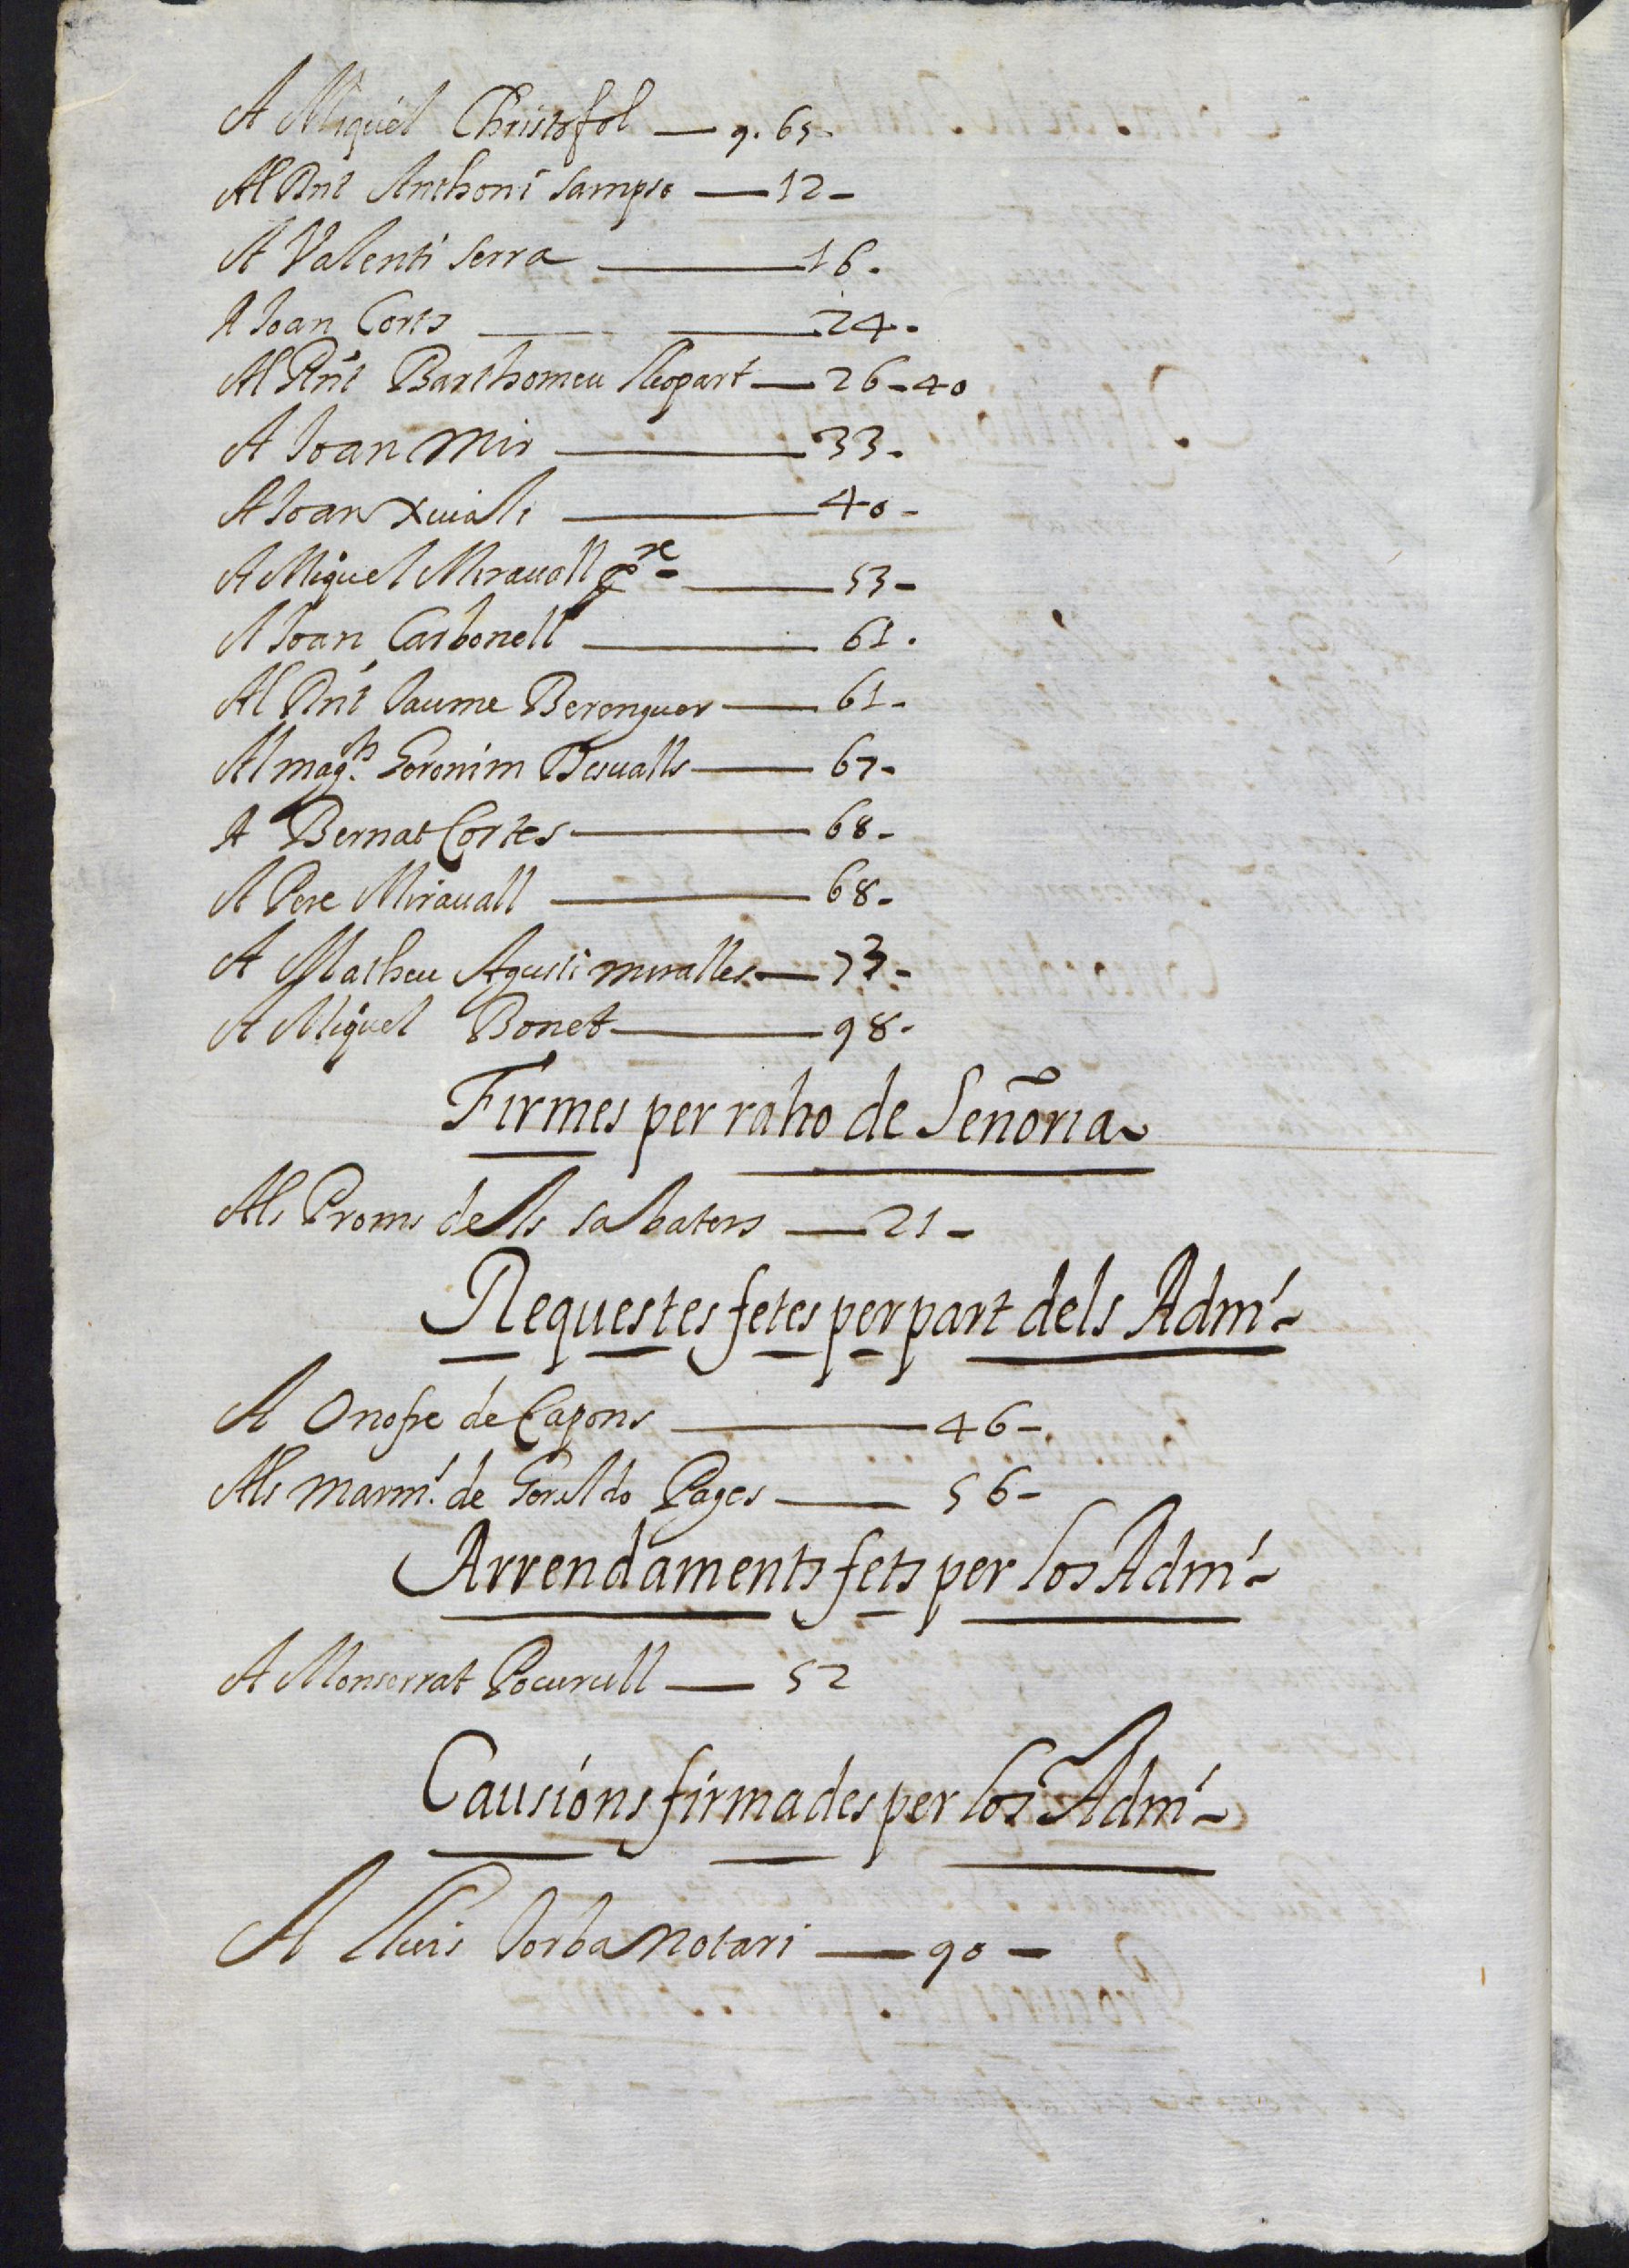 A Miquel Christofol — 9. 65.
Al Rnt Anthoni Sampso — 12 -
A Valenti Serra — 16.
A Joan Corts — 24.
Al Rnt Barthomeu Llopart — 26 - 40
A Joan Mir — 33.
A Joan — 40 -
A Miquel Mirauall pre — 53 -
A Joan Carbonell — 61.
Al Rnt Jaume Berenguer — 61 -
Al magch Geronim Desualls — 67 -
A Bernat Cortes — 68 -
A Pere Mirauall — 68 -
A Matheu Agusti Miralles — 73 -
A Miquel Bonet — 98.
Firmes per raho de Señoria
Als Proms dells Sabaters — 21 -
Requestes fetes per part dels Adm
A Onofre de Capons — 46 -
Als Marm. de Pages — 56 -
Arrendaments fets per los Adm
A Monserrat Pocurull — 52
Causions firmades per los Adm
A Lluis Jorba Notari — 90 -